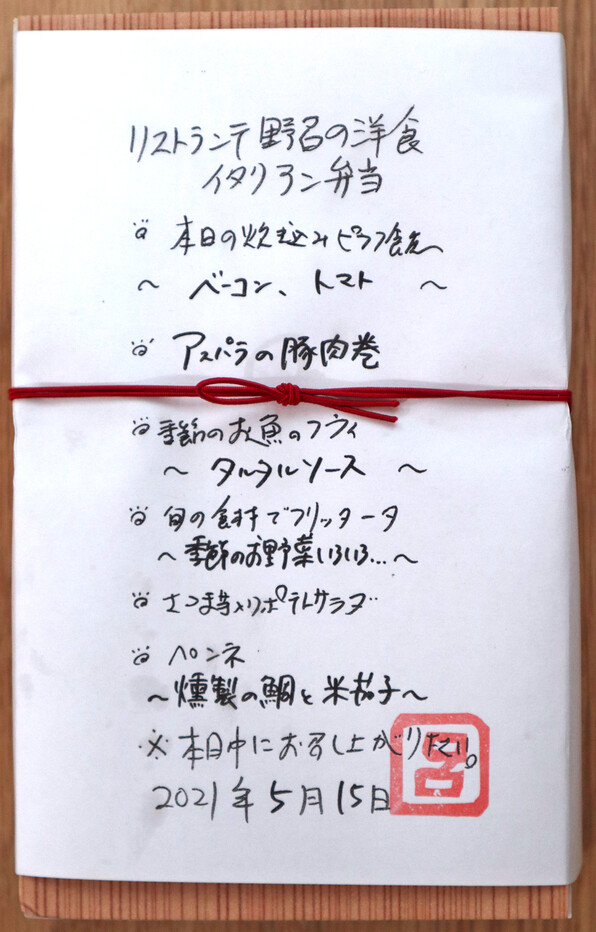 リストランテ野呂の洋食
イタリアン弁当
本日の炊込みピラフ飯
～ ベーコン、トマト ～
アスパラの豚肉巻
季節のお魚のフライ
～ タルタルソース ～
旬の食材でフリッタータ
～季節のお野菜いろいろ…～
さつま芋入りポテトサラダ
ペンネ
～燻製の鯛と米茄子～
※本日中にお召し上がり下さい。
2021年5月15日
呂